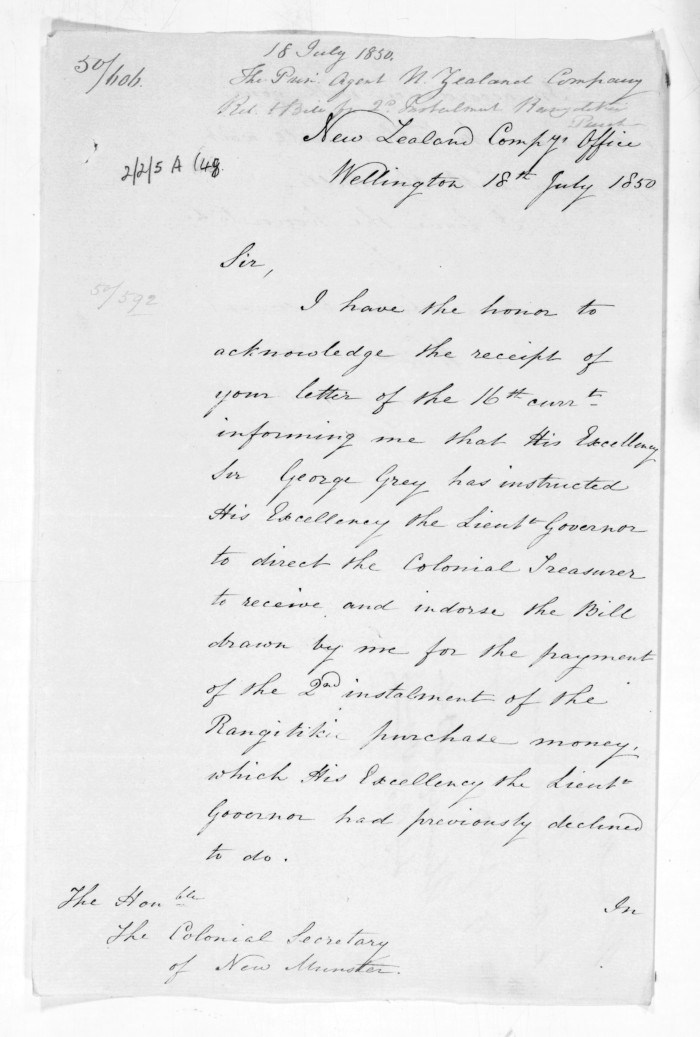 50/606.
18 July 1850.
The Prin. Agent N. Zealand Company
Rel. to Bill for 2d. Instalment
2/2/5 A (48
New Zealand Compys. Office
Wellington 18th July 1850
50/592
Sir,
I have the honor to
acknowledge the receipt of
your letter of the 16th currt.
informing me that His Excellency
Sir George Grey has instructed
His Excellency the Lieutt Governor
to direct the Colonial Treasurer
to receive and indorse the Bill
drawn by me for the payment
of the 2nd instalment of the
Rangitikei purchase money,
which His Excellency the Lieutt
Governor had previously declined
to do.
In
The Honble
The Colonial Secretary
of New Munster.